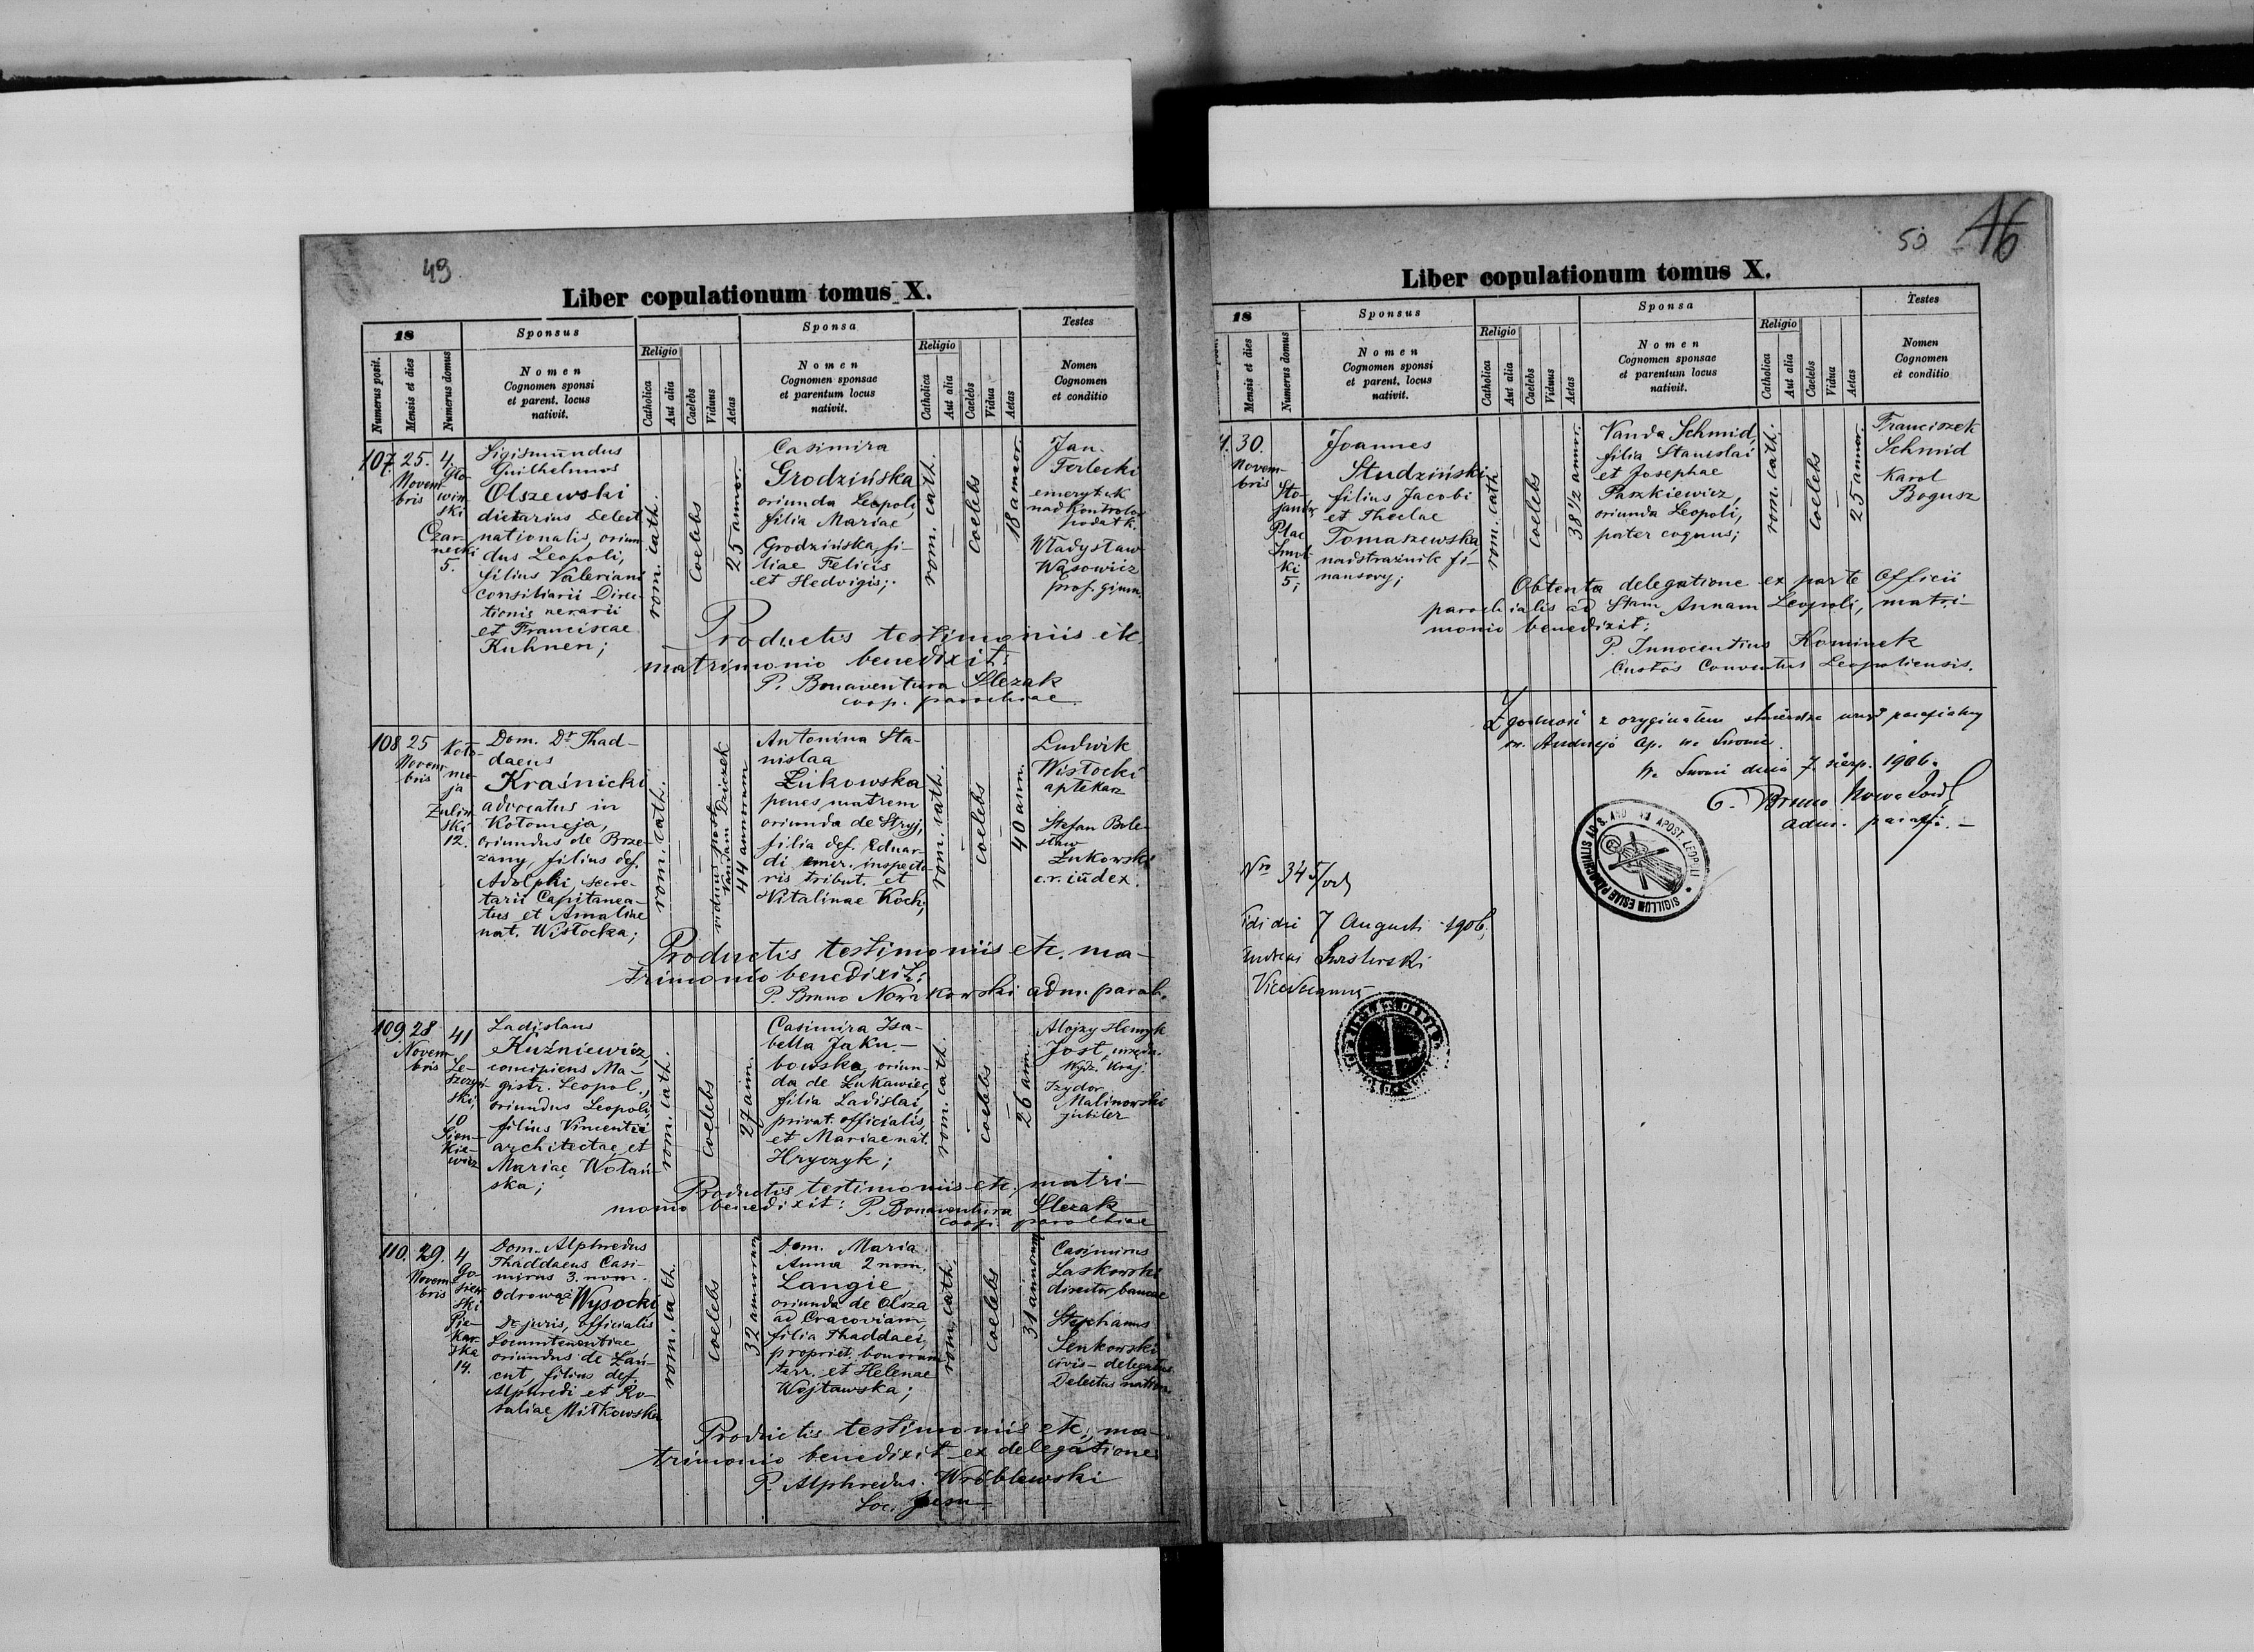 49
Liber copulationum tomus X.
18
Sponsus
Sponsa
Testes
Numerus posit.
Mensis et dies
Numerus domus
Nomen
Cognomen sponsi
et parent. locus
nativit.
Religio
Catholica
Aut alia
Caelebs
Viduus
Aetas
Nomen
Cognomen sponsae
et parentum locus
nativit.
Religio
Catholica
Aut alia
Caelebs
Vidua
Aetas
Nomen
Cognomen
et conditio
107.
25.
Novem-
bris
4.
Gło-
wiń-
ski
Czar-
necki
5.
Sigismundus
Guilhelmus
Olszewski
dietarius Delect.
nationalis, oriun-
dus Leopoli,
filius Valeriani
consiliarii Direc-
tionis aerarii
et Franciscae
Kuhnen;
rom. cath.
coelebs
25 annor.
Casimira
Grodzińska
oriunda Leopoli,
filia Mariae
Grodzińska, fi-
liae Felicis
et Hedvigis;
rom. cath.
coelebs
18 annor.
Jan
Terlecki
emeryt. ck
nadkontrolor
podatk.
Władysław
Wąsowicz
prof. gimn.
Productis testimoniis etc.
matrimonio benedixit:
P. Bonaventura Ślezak
coop. parochiae.
108
25
Novem-
bris
Koło-
my-
ja
Żuliń-
ski
12.
Dom. Dr Thad-
daeus
Kraśnicki
advocatus in
Kołomyja,
oriundus de Brze-
żany, filius def.
Adolphi, secre-
tarii Capitanea-
tus et Amaliae
nat. Wisłocka;
rom. cath.
viduus post
Vandam Dziczek
44 annorum
Antonina Sta-
nislaa
Żukowska
penes matrem
oriunda de Stryj,
filia def. Eduar-
di emer. inspecto-
ris tribut. et
Vitalinae Koch;
rom. cath.
coelebs
40 ann.
Ludwik
Wisłocki
aptekarz
Stefan Bole-
sław
Żukowski
c.r. iudex.
Productis testimoniis etc. ma-
trimonio benedixit:
P. Bruno Nowakowski adm. paroch.
109.
28
Novem-
bris
41
Le-
szczyń-
ski;
10
Sien-
kie-
wicz
Ladislaus
Kuźniewicz,
concipiens Ma-
gistr. Leopol.,
oriundus Leopoli,
filius Vincentii
architectae et
Mariae Wolań-
ska;
rom. cath.
coelebs
27 ann.
Casimira Isa-
bella Jaku-
bowska, oriun-
da de Łukawiec,
filia Ladislai,
privat. officialis,
et Mariae nat.
Hryczyk;
rom. cath.
coelebs
26 ann.
Alojzy Henryk
Jost, urzędn.
Wydz. Kraj.
Izydor
Malinowski
jubiler
Productis testimoniis etc. matri-
monio benedixit: P. Bonaventura Ślezak
coop. parochiae
110.
29.
Novem-
bris
4
Go-
siew-
ski
Pie-
kar-
ska
14.
Dom. Alphredus
Thaddaeus Casi-
mirus 3. nom.
Odrowąż Wysocki
Dr juris, officialis
Locumtenentiae
oriundus de Łań-
cut, filius def.
Alphredi et Ro-
saliae Mitkowska
rom. cath.
coelebs
32 annorum
Dom. Maria
Anna 2 nom.
Langie
oriunda de Olsza
ad Cracoviam,
filia Thaddaei,
propriet. bonorum
terr. et Helenae
Wojtawska;
rom. cath.
coelebs
31 annorum
Casimirus
Laskowski
director bancae
Stephanus
Senkowski
civis - delegatus
Delectus nation.
Productis testimoniis etc., ma-
trimonio benedixit ex delegatione
P. Alphredus Wróblewski
Soc. Jesu
50
46
Liber copulationum tomus X.
18
Sponsus
Sponsa
Testes
Mensis et dies
Numerus domus
Nomen
Cognomen sponsi
et parent. locus
nativit.
Religio
Catholica
Aut alia
Caelebs
Viduus
Aetas
Nomen
Cognomen sponsae
et parentum locus
nativit.
Religio
Catholica
Aut alia
Caelebs
Vidua
Aetas
Nomen
Cognomen
et conditio
30.
Novem-
bris
Sto-
janów
Plac
Smol-
ki
5;
Joannes
Studziński
filius Jacobi
et Theclae
Tomaszewska,
nadstrażnik fi-
nansowy;
rom. cath.
coelebs
38 1/2 annor.
Vanda Schmid,
filia Stanislai
et Josephae
Paszkiewicz,
oriunda Leopoli,
pater cognus;
rom. cath.
coelebs
25 annor.
Franciszek
Schmid
Karol
Bogusz
Obtenta delegatione ex parte Officii
parochialis ad Stam Annam Leopoli, matri-
monio benedixit:
P. Innocentius Kominek
Custos Conventus Leopoliensis.
Zgodność z oryginałem stwierdza urząd parafialny
św. Andrzeja Ap. we Lwowie.
We Lwowie dnia 7. sierp. 1906.
adm. parafii.
SIGILLUM ECCLESIAE PAROCHIALIS AD S. ANDREAM APOST. LEOPOLI
7 Augusti 1906.